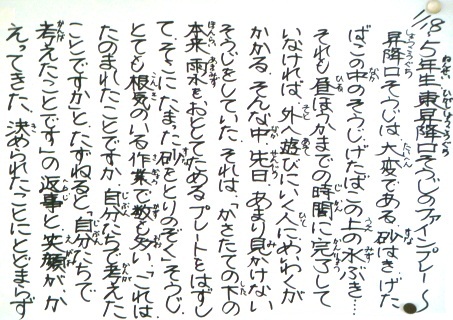 11/8 5年生 東昇降口そうじのファインプレー〜
昇降口そうじは大変である。砂はき、げた
ばこの中のそうじ、げたばこの上の水ぶき…
それも昼ほうかまでの時間に完了して
いなければ、外へ遊びにいく人にめいわくが
かかる。そんな中、先日、あまり見かけない
そうじをしていた。それは、「かさたての下の
本来、雨水をおとしてためるプレートをはずし
て、そこにたまった砂をとりのぞく」そうじ。
とても根気のいる作業で数も多い。「これは
たのまれたことですか、自分たちで考えた
ことですか」とたずねると、「自分たちで
考えたことです」の返事と笑顔がか
えってきた。決められたことにとどまらず